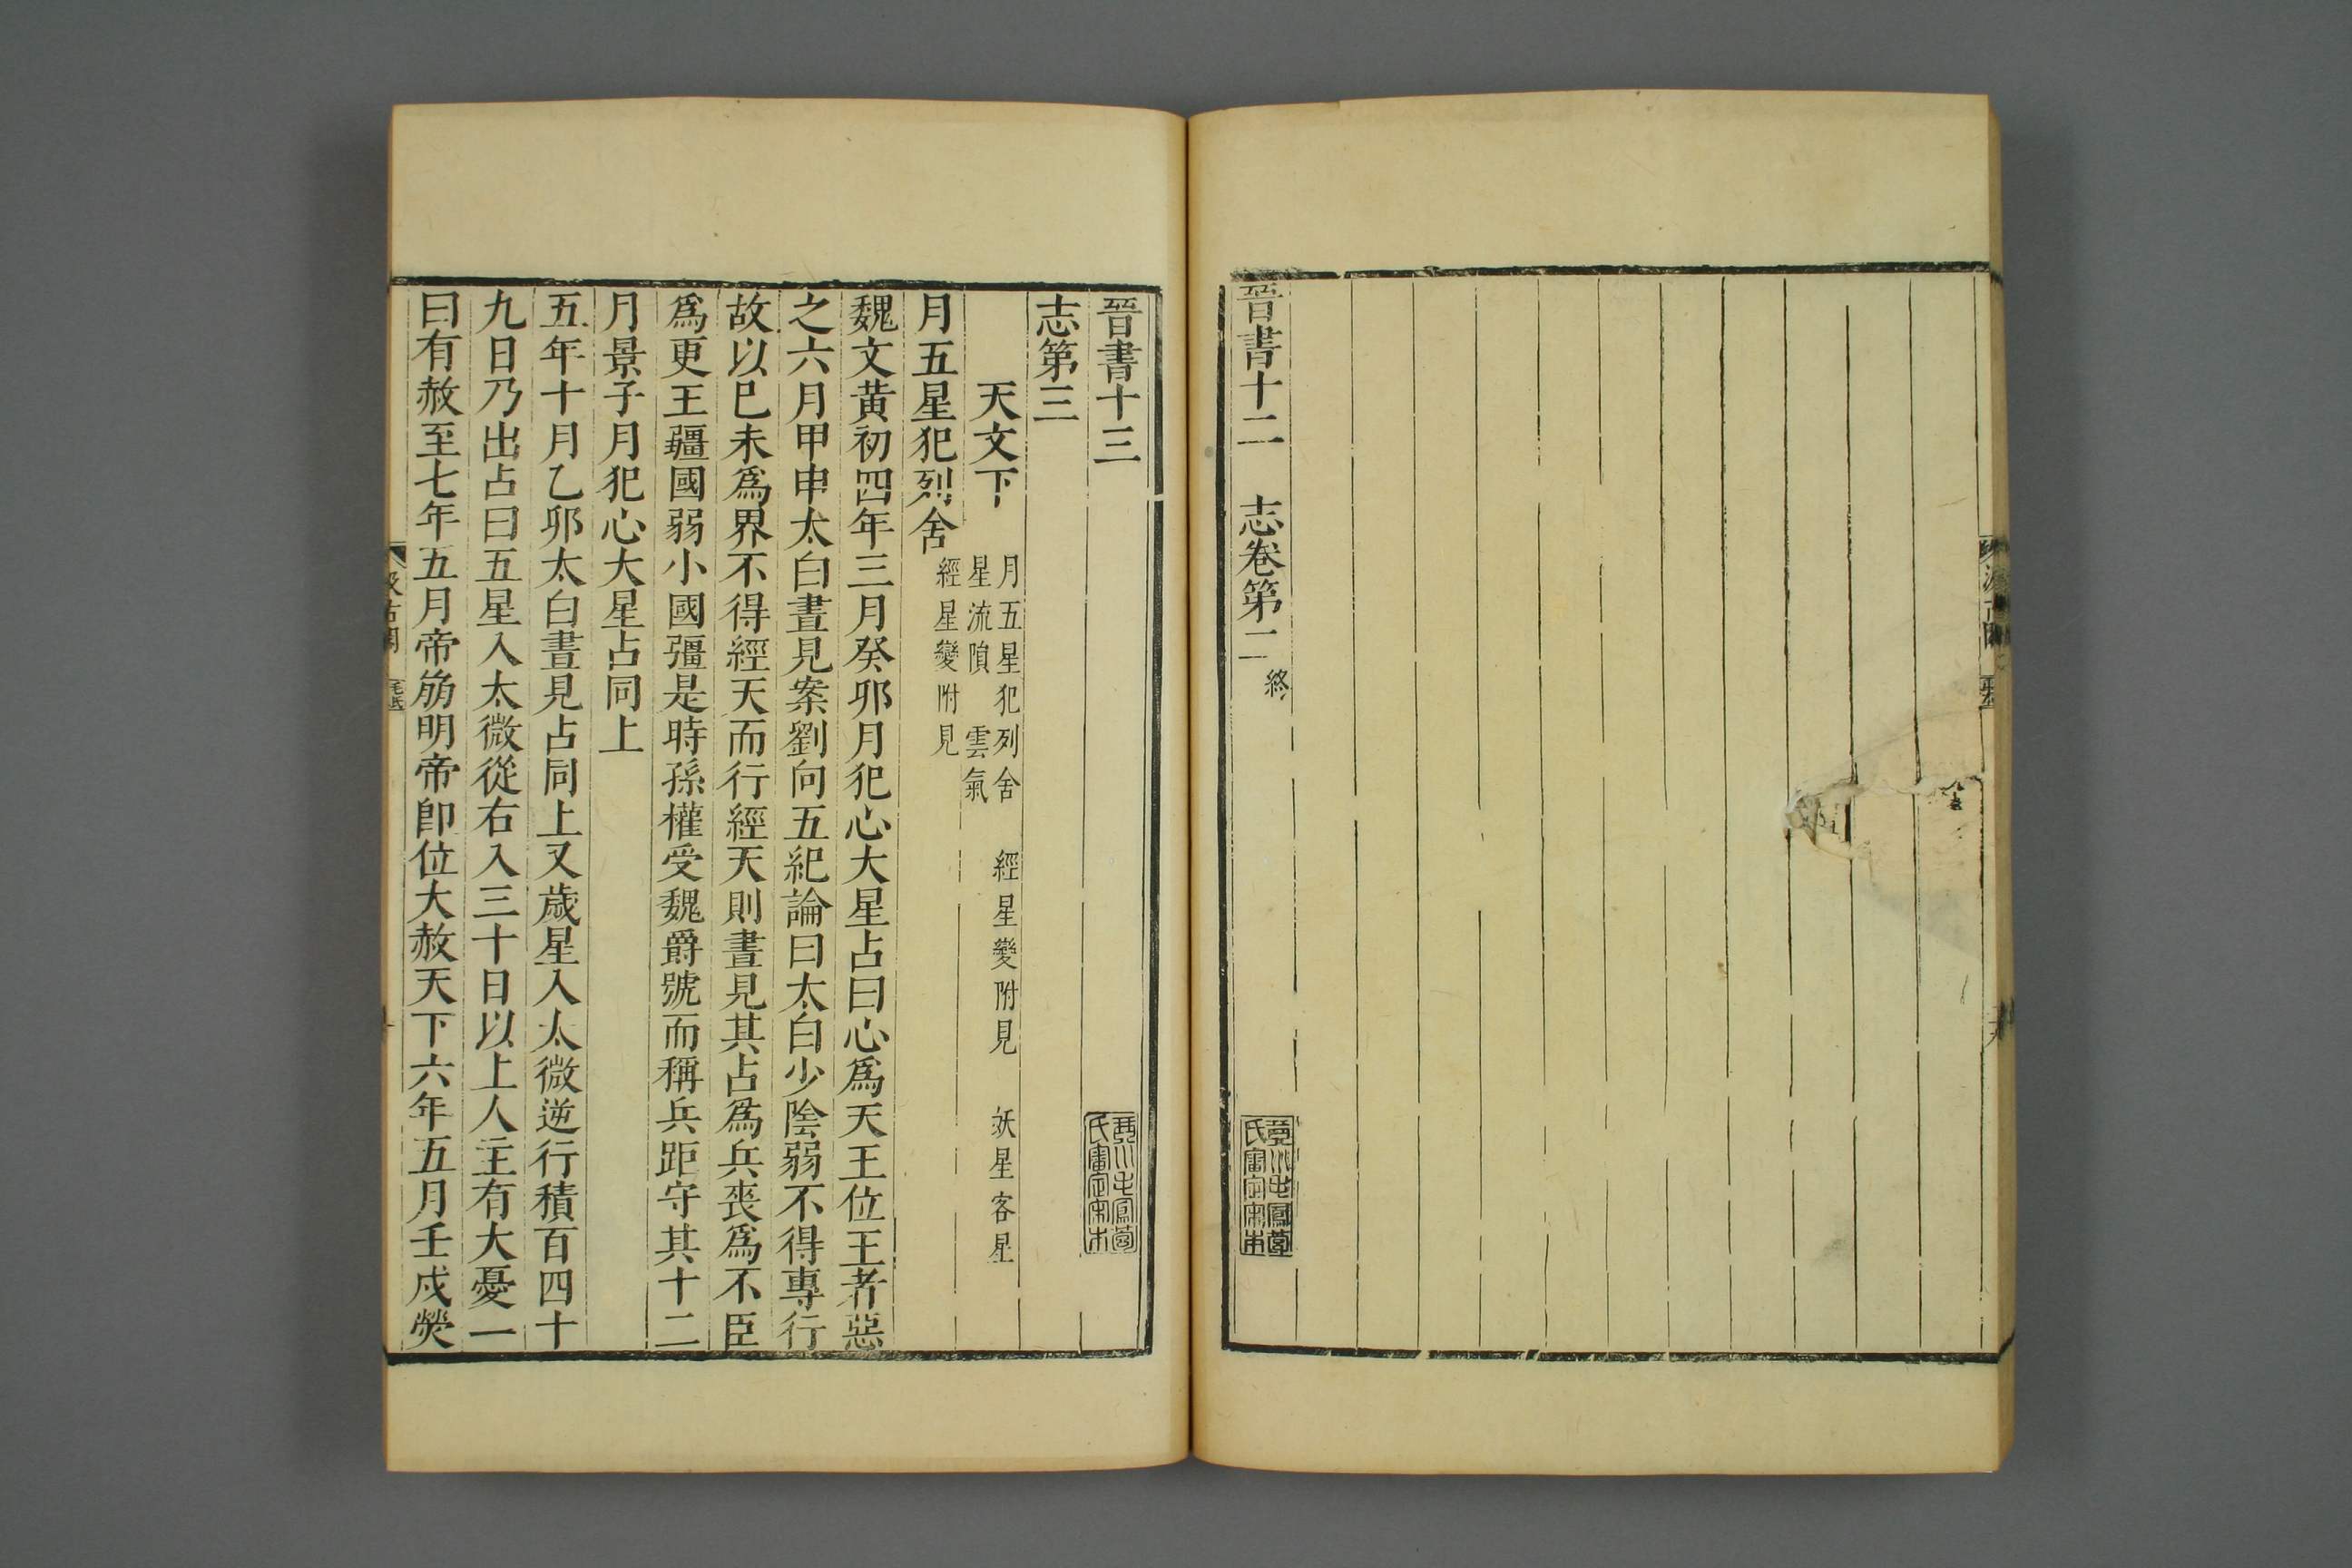 晉書十二　志卷第二終
晉書十三
志第三
天文下
月五星犯列舍　經星變附見　妖星客星
星流隕　雲氣
月五星犯列舍
經星變附見
魏文黃初四年三月癸卯月犯心大星占曰心爲天王位王者惡
之六月甲申太白晝見案劉向五紀論曰太白少陰弱不得專行
故以巳未爲界不得經天而行經天則晝見其占爲兵喪爲不臣
爲更王疆國弱小國彊是時孫權受魏爵號而稱兵距守其十二
月景子月犯心大星占同上
五年十月乙卯太白晝見占同上又歲星入太微逆行積百四十
九日乃出占曰五星入太微從右入三十日以上人主有大憂一
曰有赦至七年五月帝崩明帝卽位大赦天下六年五月壬戌熒